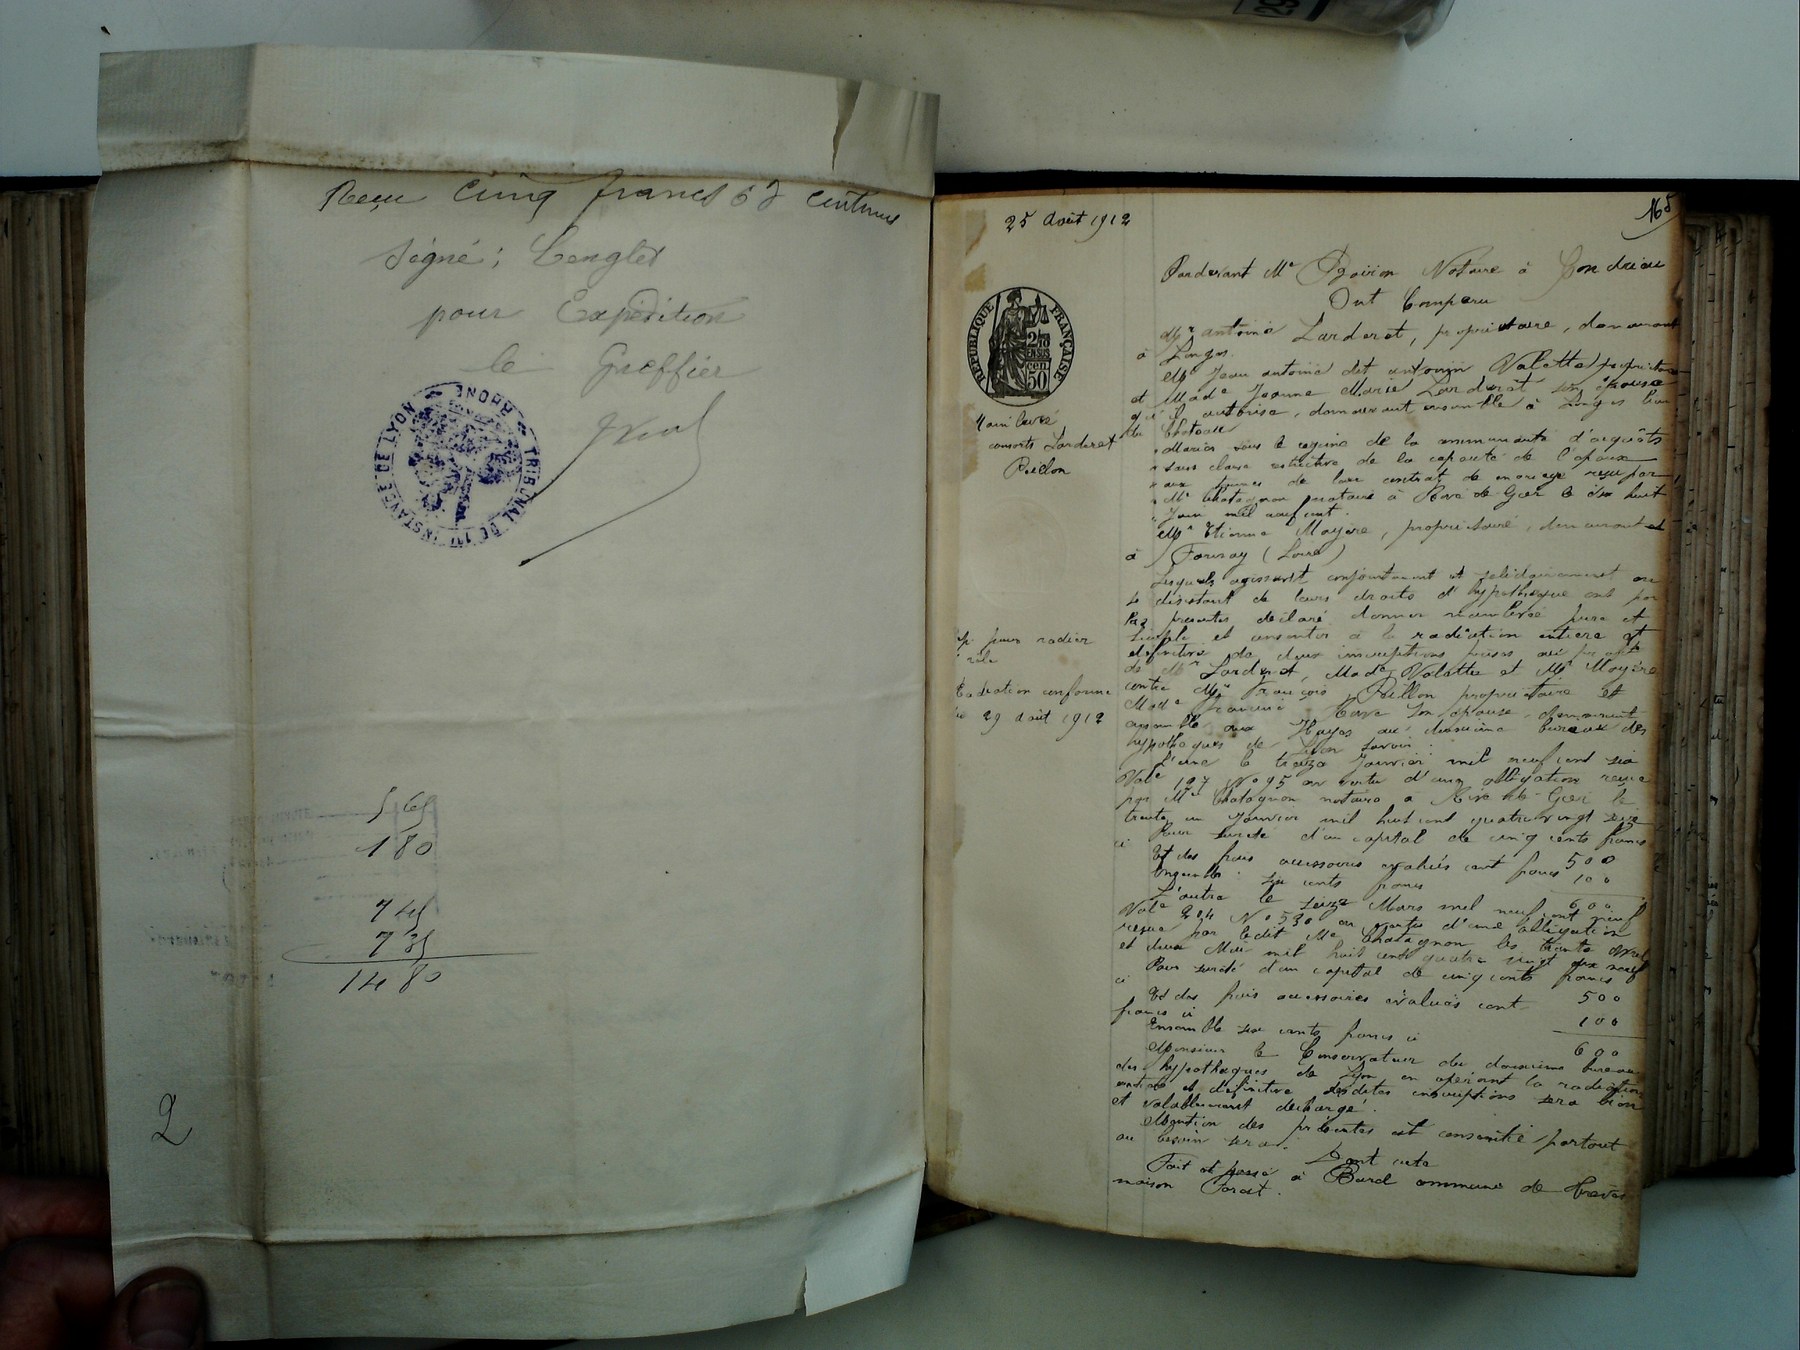 Reçu cinq francs 52 centimes
signé: Lenglet
pour Expédition
le Greffier
TRIBUNAL DE 1RE INSTANCE DE LYON
RHONE
565
180
745
735
1480
2
165
25 Août 1912
RÉPUBLIQUE FRANÇAISE
2/10 EN SUS
cen 50
Main levée
consorts Larderet
Pillon
pour radier
rôle
Radiation conforme
le 29 août 1912
Pardevant Me Boiron Notaire à Condrieu
Ont Comparu
Mr Antoine Larderet, propriétaire, demeurant
à Longes.
Mr Jean Antoine dit Antonin Valette propriétaire
et Made Jeanne Marie Larderet son épouse
qu'il autorise, demeurant ensemble à Longes lieu
du Chateau
"Mariés sous le régime de la communauté d'acquêts
"sans clause restrictive de la capacité de l'épouse
"aux termes de leur contrat de mariage reçu par
"Me Chatagnon notaire à Rive de Gier le dix huit
"Juin mil neuf cent.
Mr Etienne Moyère, propriétaire, demeurant
à Farnay (Loire)
Lesquels agissant conjointement et solidairement en
se désistant de leurs droits d'hypothèque ont par
les présentes déclaré donner mainlevée pure et
simple et consentir à la radiation entière et
définitive de deux inscriptions prises au profit
de Mr Larderet, Made Valette et Mr Moyère
contre Mr François Pillon propriétaire et
Made son épouse demeurant
ensemble aux Hayes au deuxième bureau des
hypothèques de Lyon savoir:
L'une le treize Janvier mil neuf cent six
Vole 197 No 95 en vertu d'une obligation reçue
par Me Chatagnon notaire à Rive de Gier le
trente un Janvier mil huit cent quatre vingt seize
Pour sureté d'un capital de cinq cents francs
ci 500
Et des frais accessoires évalués cent francs 100
Ensemble: six cents francs 600
L'autre le seize Mars mil neuf cent neuf
Vole 204 No 530 en vertu d'une obligation
reçue par ledit Me Chatagnon les trente Avril
et deux Mai mil huit cent quatre vingt dix neuf
Pour sureté d'un capital de cinq cents francs
ci 500
Et des frais accessoires évalués cent
francs ci 100
Ensemble six cents francs ci 600
Monsieur le Conservateur du deuxième bureau
des hypothèques de Lyon en opérant la radiation
entière et définitive desdites inscriptions sera bien
et valablement déchargé.
Mention des présentes est consentie partout
où besoin sera.
Dont acte
Fait et passé à Burel commune de Trèves
maison Forat.